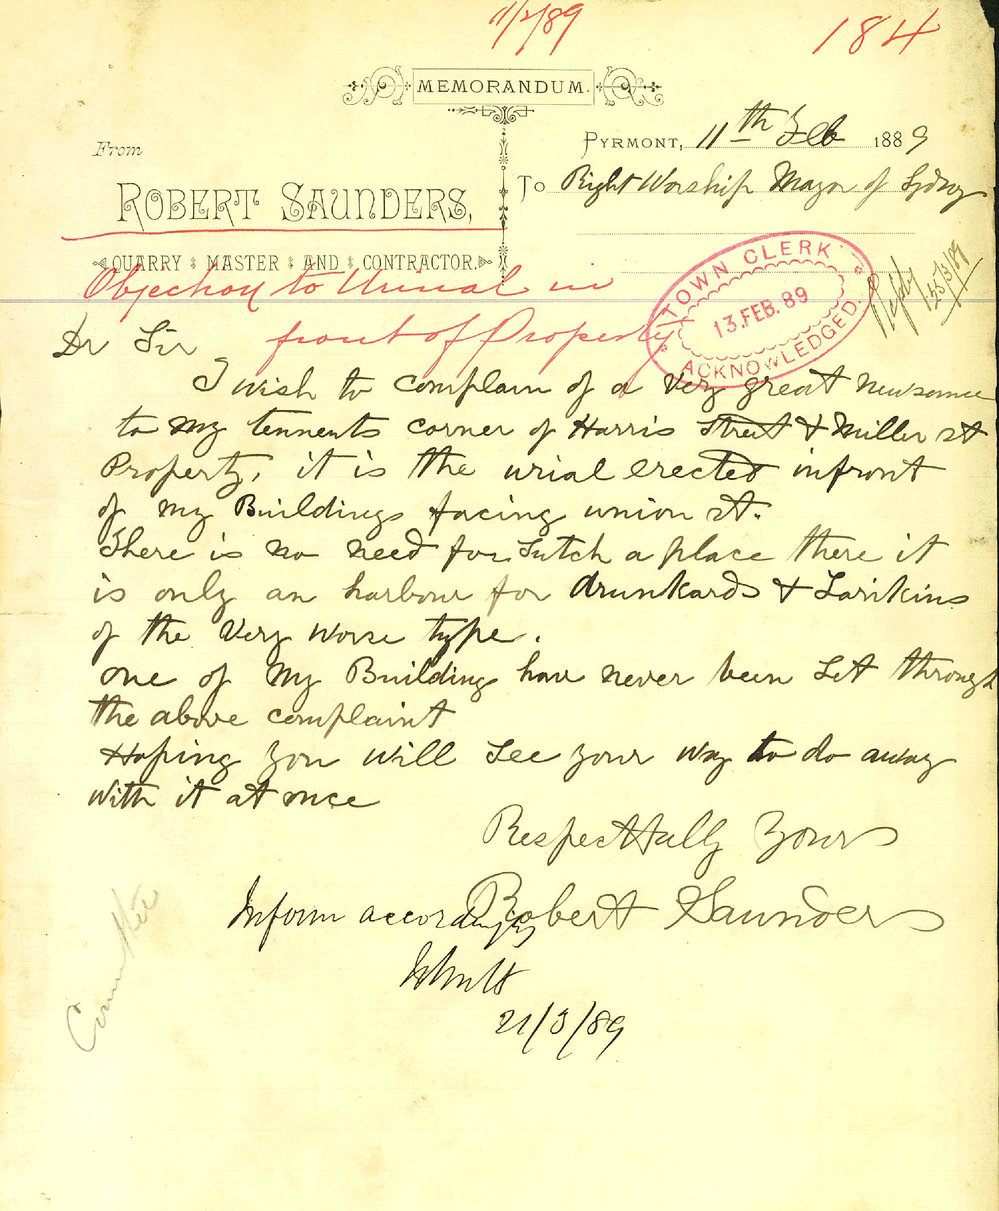 11/2/89
184
MEMORANDUM.
From
ROBERT SAUNDERS,
QUARRY MASTER AND CONTRACTOR.
PYRMONT, 11th Feb 1889
To Right Worship Mayor of Sydney
Objection to Urinal in
front of Property
TOWN CLERK
13. FEB. 89
ACKNOWLEDGED.
Reply
25/3/89
Dr Sir
I wish to complain of a very great newsance
to my tennents corner of Harris Street & Miller st
Property, it is the urial erected infront
of my Buildings facing union st.
There is no need for sutch a place there it
is only an harbour for drunkards & Larikins
of the very worse type.
one of my Buildings have never been Let through
the above complaint
Hoping you will see your way to do away
with it at once
Respectfully yours
Robert Saunders
Inform accordingly
21/3/89
Committee